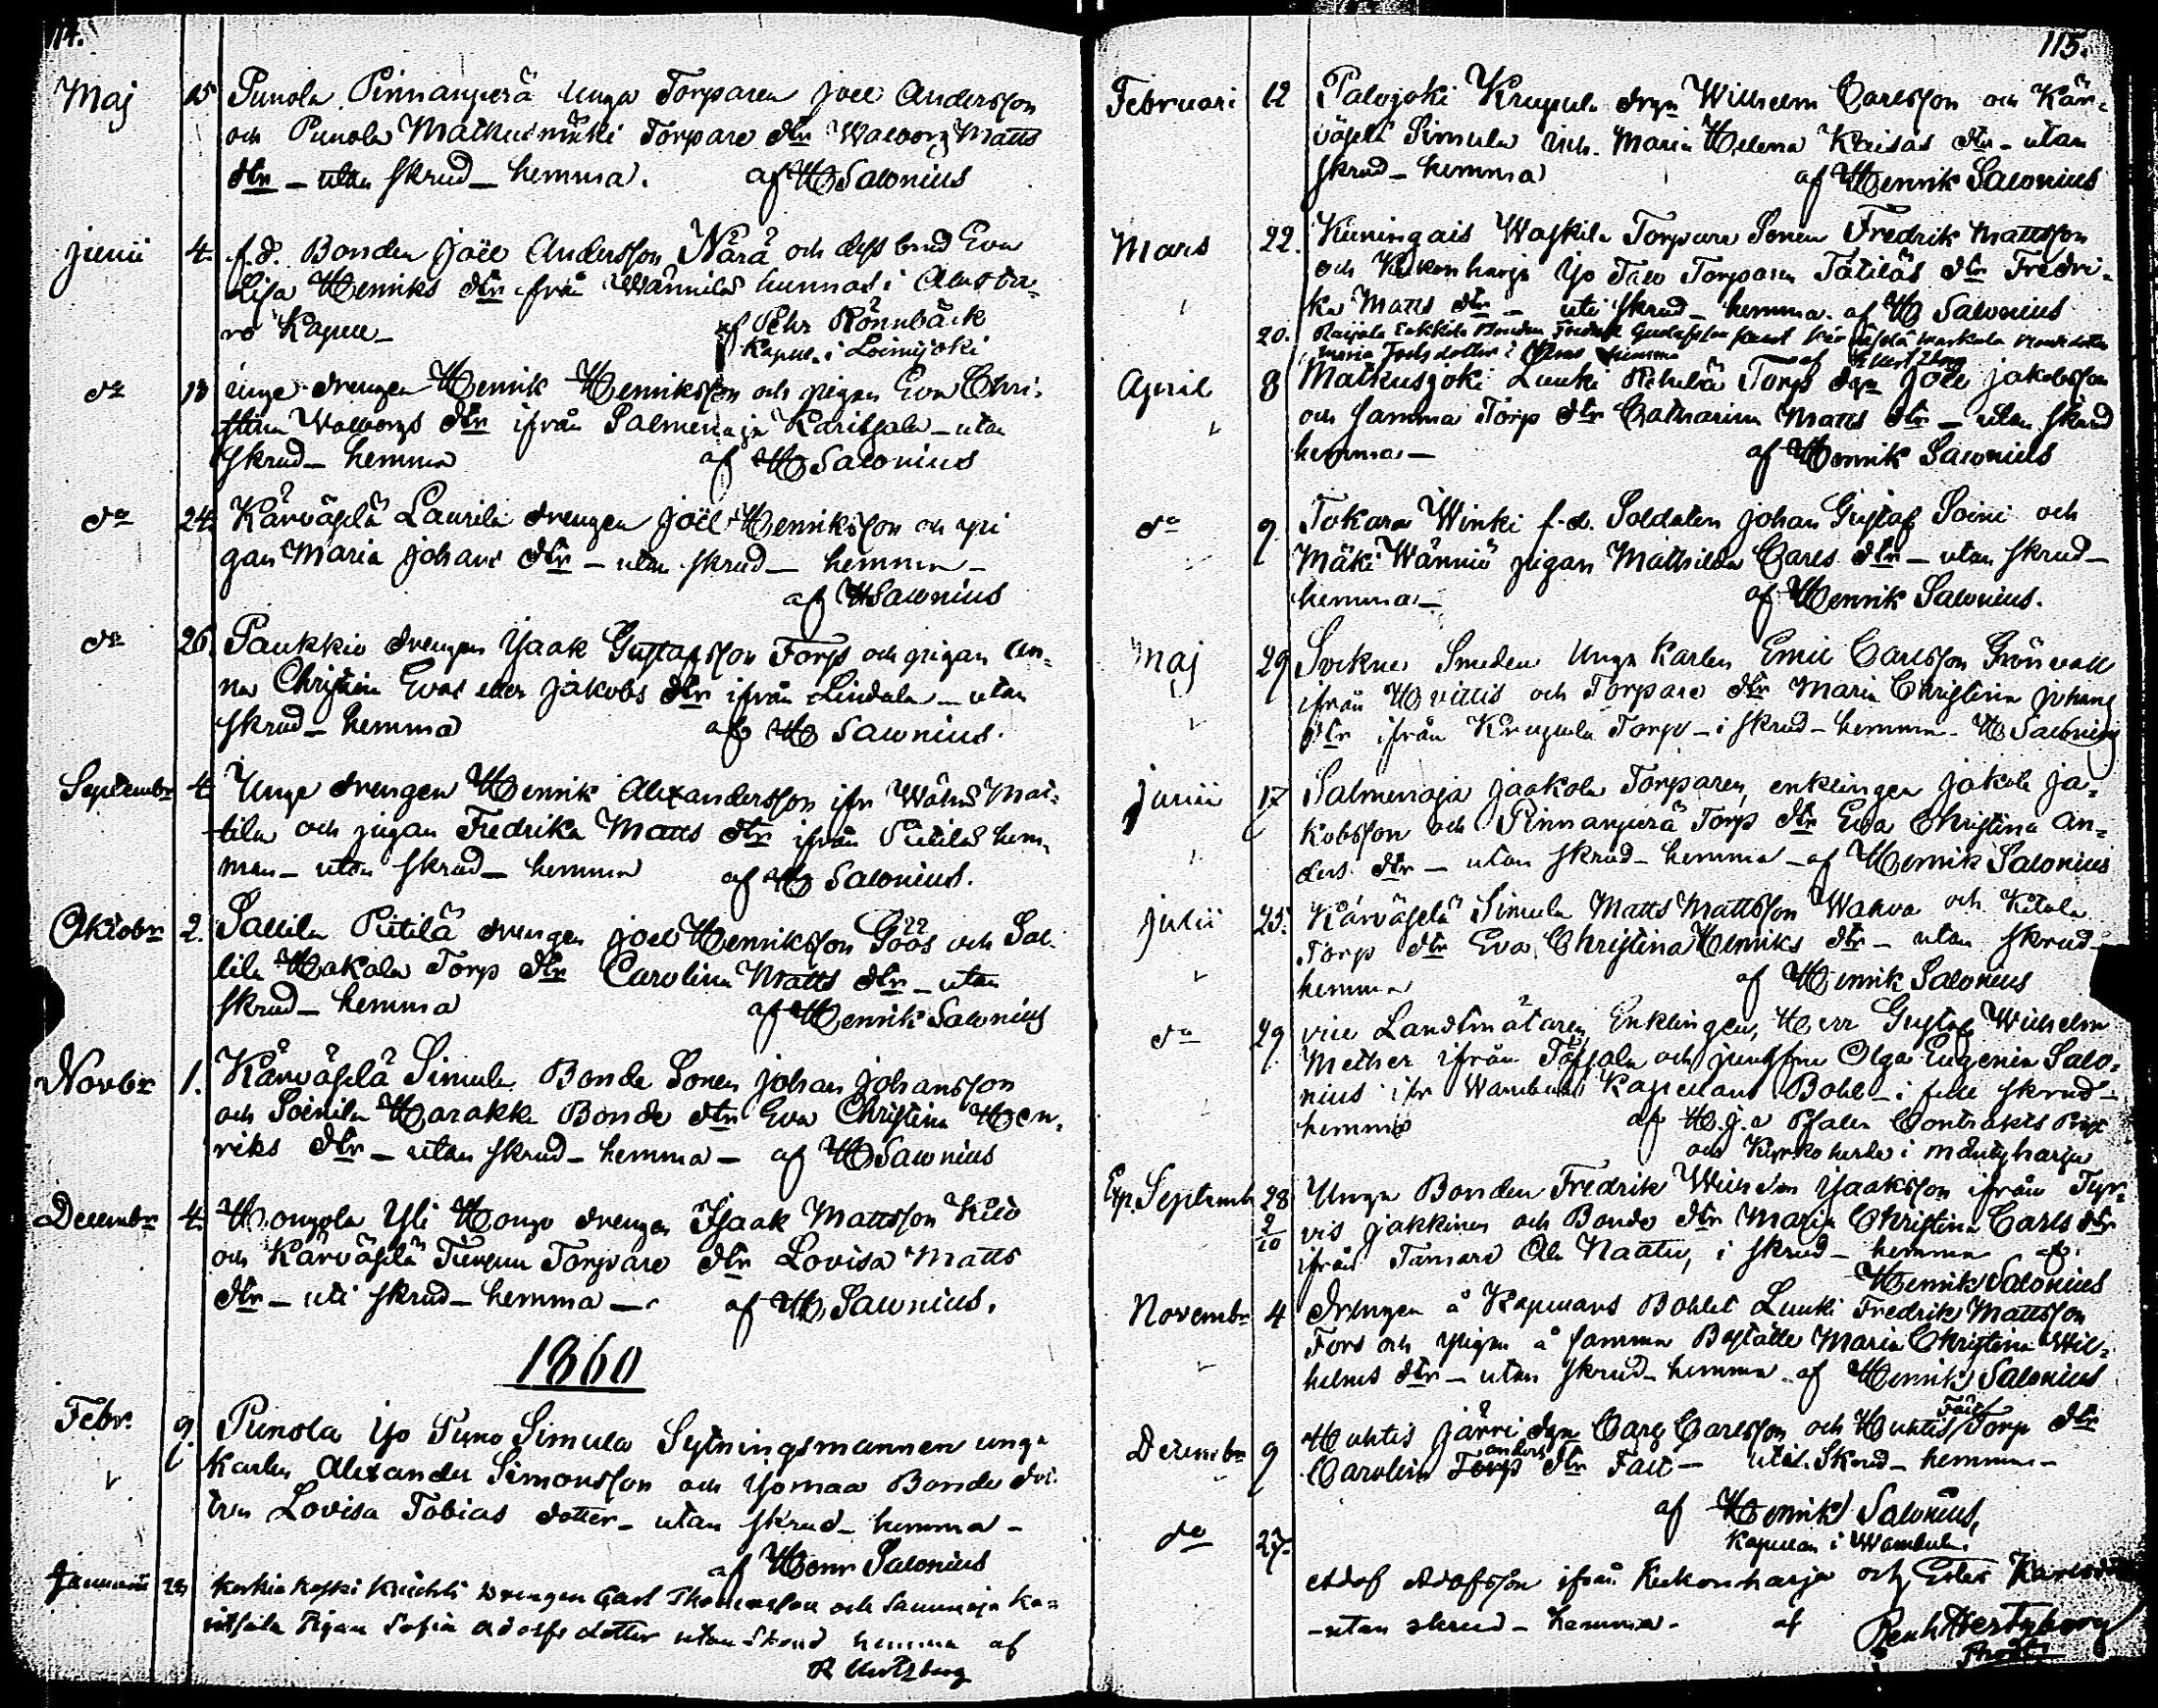 114.
Maj 15 Punola Pinnanperä unga Torparen Joel Andersson
och Punola Torpare dtr Walborg Matts
dtr - utan skrud - hemma. af H Salonius
Junii 4. f.d. Bonden Joël Andersson Närä och dess brud Eva
Lisa Henriks dtr från Wännilä hemman i Alasta-
ro Kapell - af Pehr Rönnbäck
Kapell. i Loimijoki
do 13 unge drengen Henrik Henriksson och pigan Eva Chri-
stina Walborgs dtr ifrån Salmenoja Karitsala - utan
skrud - hemma af H Salonius
do 24. Kärväselä Laurila drengen Joël Henriksson och pi
gan Maria Johans dtr - utan skrud - hemma -
af H Salonius
do 26. Paukkio drengen Isaak Gustafsson Torp och pigan An-
na Christina Evas eller Jakobs dtr ifrån Lindala - utan
skrud - hemma af H Salonius.
Septembr 4. Unge drengen Henrik Alexandersson ifr Mat-
tila och pigan Fredrika Matts dtr ifrån Pietilä hem-
man - utan skrud - hemma af H Salonius.
Oktobr 2. Sallila Pietilä drengen Joel Henriksson Göös och Sal-
lila Hakala Torp dtr Carolina Matts dtr - utan
skrud - hemma af Henrik Salonius
Novbr 1. Kärväselä Simula Bonde Sonen Johan Johansson
och Soinila Harakka Bonde dtr Eva Christina Hen-
riks dtr - utan skrud - hemma - af H Salonius
Decembr 4. Hongola Yli Hongo drengen Isaak Mattsson
och Kärväselä Torpare dtr Lovisa Matts
dtr - uti skrud - hemma - af H Salonius.
1860
Febr. 9. Punola Yso Puno Simula Sytningsmannen unga
Karlen Alexander Simonsson och Ysomaa Bonde dot-
tren Lovisa Tobias dotter - utan skrud - hemma -
af Henr Salonius
Januarii Drengen Carl Thomasson och Sammaja Ka-
ritsala Pigan Sofia Adolfs dotter utan Skrud hemma af
R Hertzberg
115.
Februari 12 Palojoki Krupula drgn Wilhelm Carlsson och Kär-
väselä Simula inh. Maria Helena Kaisas dtr - utan
skrud - hemma af Henrik Salonius
Mars 22. Kuningais Waskila Torpare Sonen Fredrik Mattsson
och Keikonharja Yso Talo Torparen dtr Fredri-
ka Matts dtr - uti skrud - hemma. af H Salonius
20. Eskkila Bonden Fredrik Gustafsson samt
Maria dotter i hemma af Hertzberg
April 8 Matkusjoki Luuki Torps dgn Joël Jakobsson
och samma Torp dtr Catharina Matts dtr - utan skrud
hemma - af Henrik Salonius
do 9 Tokara Winki f.d. Soldaten Johan Gustaf Soini och
Mäki Wänniä pigan Mathilda Carls dtr - utan skrud -
hemma - af Henrik Salonius.
Maj 29 Smeden Unga Karlen Emil Carlsson Grönvall
ifrån Hvittis och Torpare dtr Maria Christina Johans
dtr ifrån Krupula Torp - i skrud - hemma. H Salonius
Junii 17 Salmenoja Jaakola Torparen, enklingen Jakob Ja-
kobsson och Pinnanperä Torp dtr Eva Christina An-
ders dtr - utan skrud - hemma - af Henrik Salonius
Julii 25. Kärväselä Simula Matts Mattsson Wahva och Kitala
Torp dtr Eva Christina Henriks dtr - utan skrud -
hemma af Henrik Salonius
do 29 vice Landtmätaren Enklingen, Herr Gustaf Wilhelm
Mether ifrån och jungfru Olga Eugenia Salo-
nius ifr Wambula Kapellans Bohl - i full skrud -
hemma af H.J. a Pfaler Contrakts Prost
och Kyrkoherde i Mäntyharju
Exp. Septemb 28 Unga Bonden Fredrik Wilhelm Isaaksson ifrån Tyr-
9/10 vis Jakkinen och Bonde dtr Maria Christina Carls dtr
ifrån Tamare Ala Naatu, i skrud - hemma af.
Henrik Salonius
Novembr 4 drengen å Kapellans Bohlet Luuki Fredrik Mattsson
Fors och pigan å samma Boställe Maria Christina Wil-
helms dtr - utan skrud - hemma - af Henrik Salonius
Decembr 9 Huhtis Järvi dgn Carl Carlsson och Huhtis Torp dtr
Carolina anders dtr Fält - utan Skrud - hemma -
af Henrik Salonius,
Kapellan i Wambula.
do 27.
Adolf Adolfsson ifrån Keikonharja och
- utan skrud - hemma - af Hertzberg